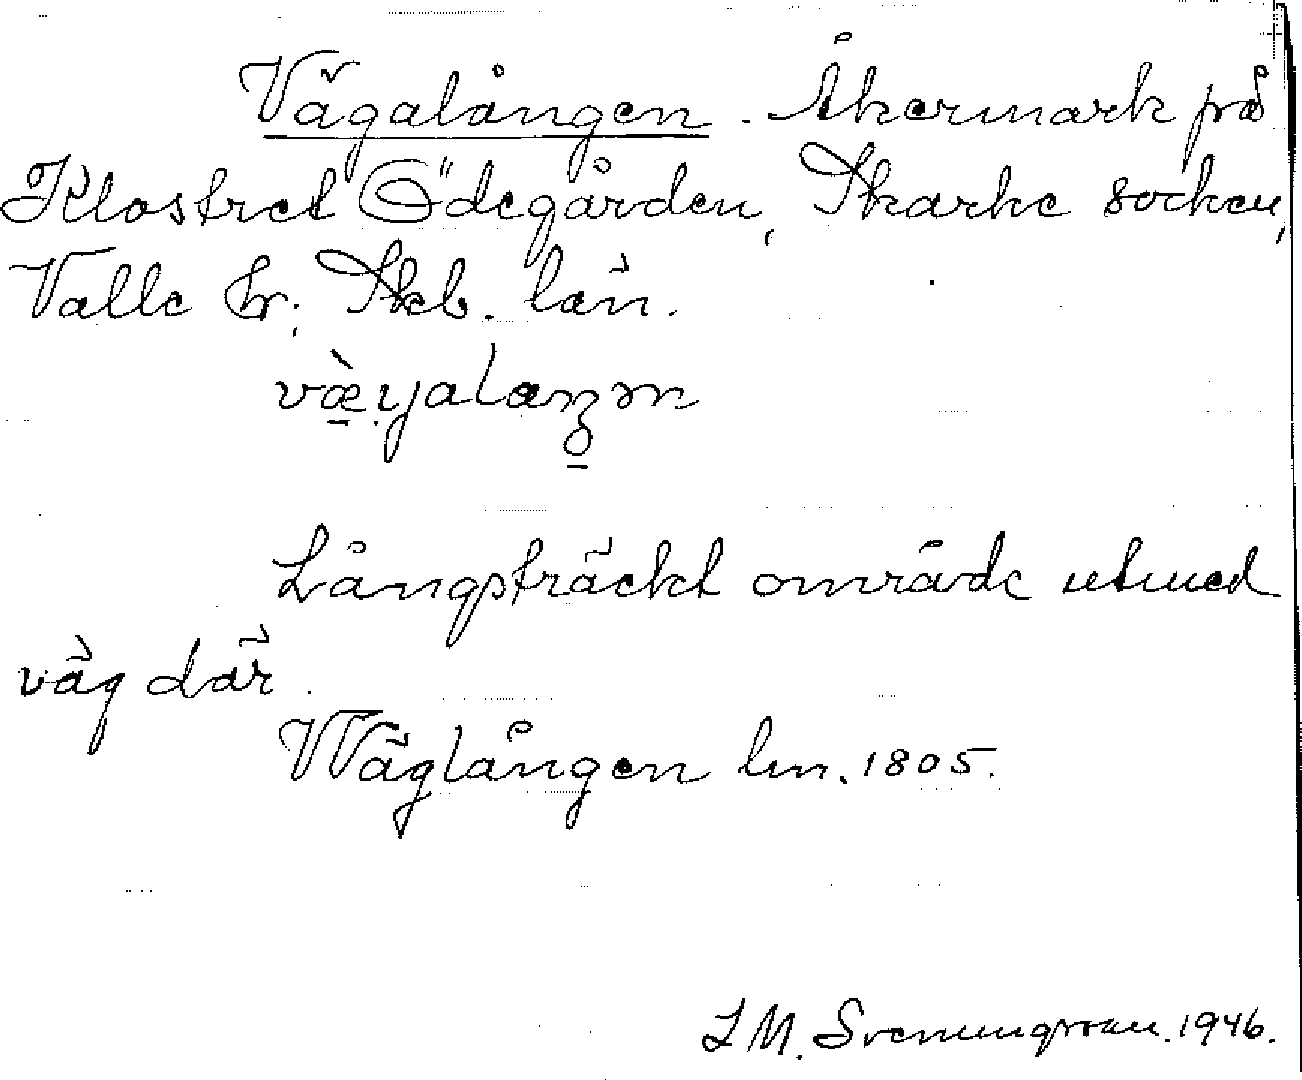 Vägalången. Åkermark på
Klostret Ödegården, Skarke socken,
Valle hr; Skb. län.
Långsträckt område utmed
väg där.
Wäglången lm. 1805.
L M. Svenungsson. 1946.